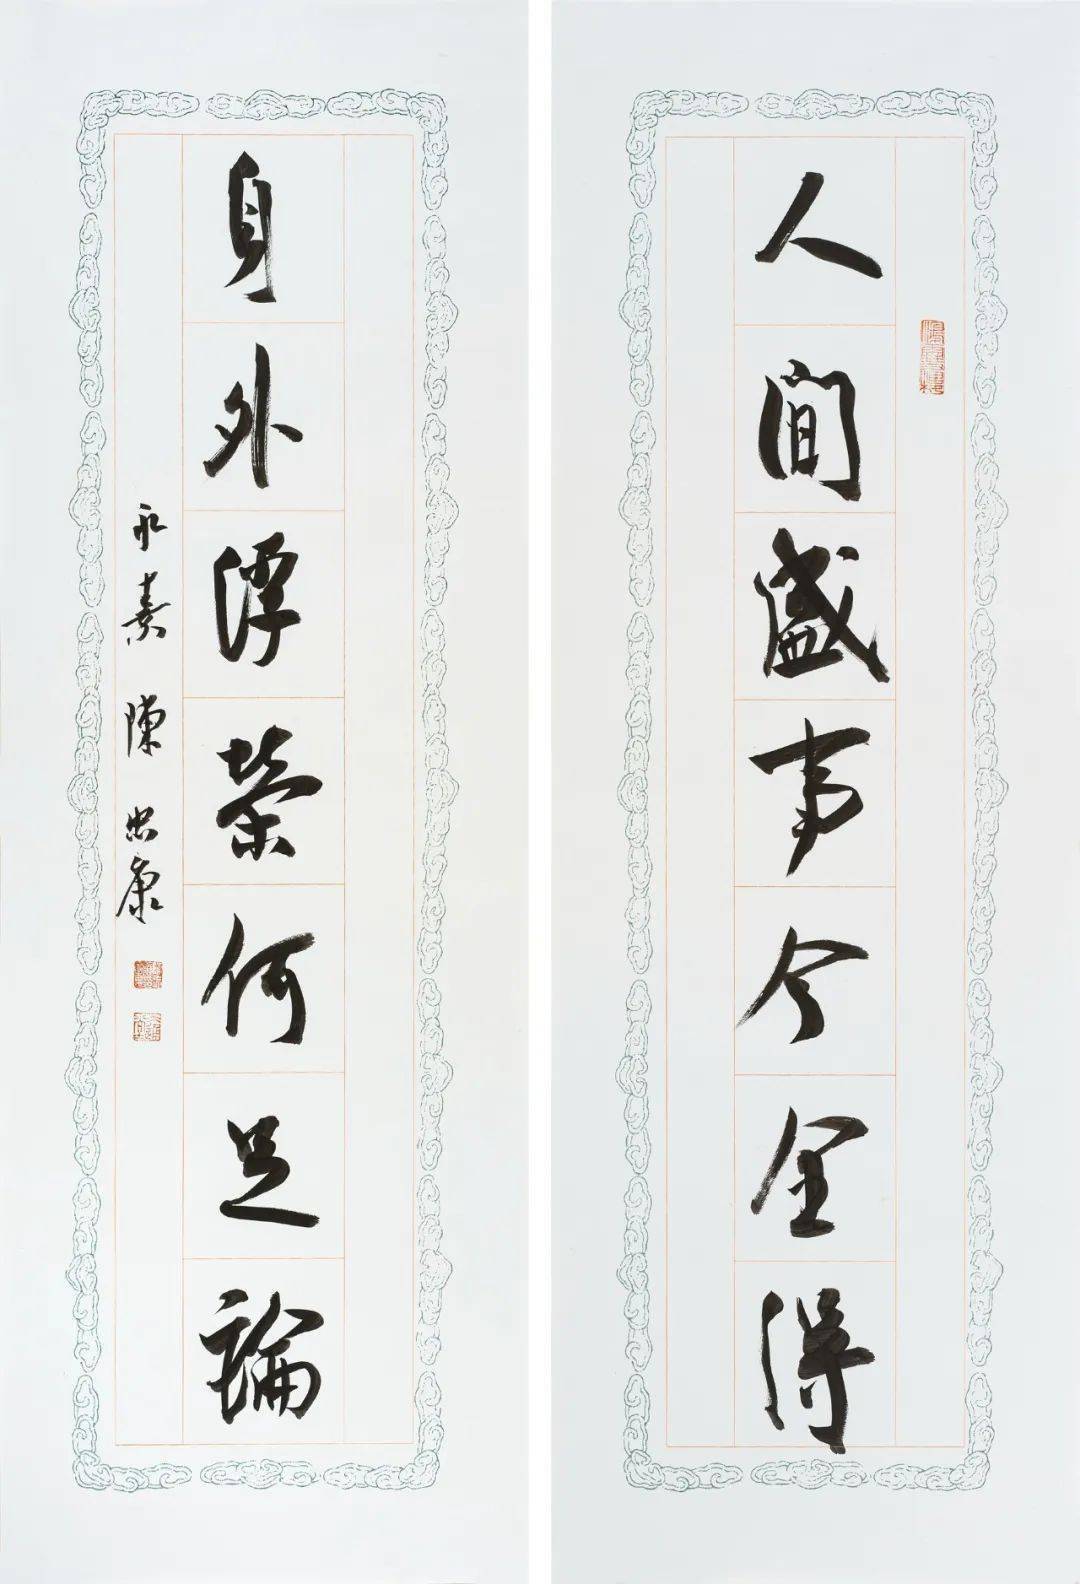 人間盛事今全得
身外浮榮何足論
永嘉 陳忠康